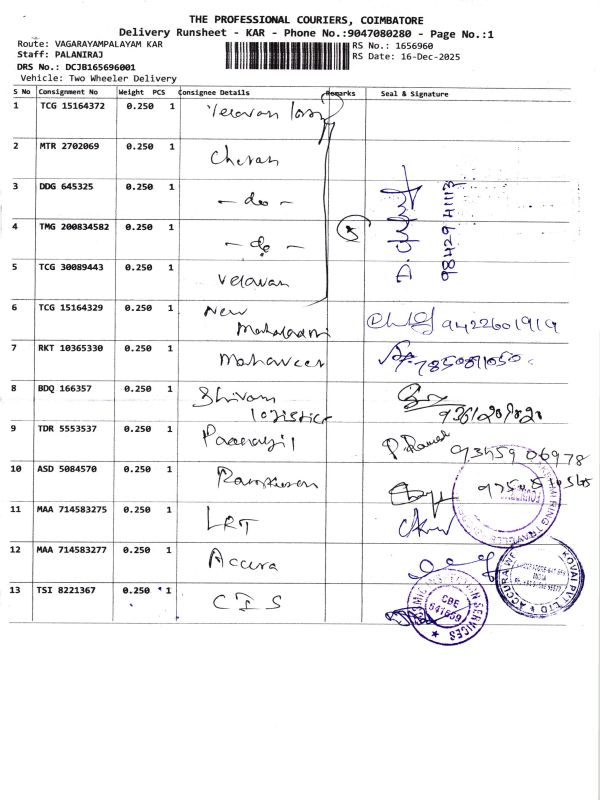 THE PROFESSIONAL COURIERS, COIMBATORE
Delivery Runsheet - KAR - Phone No.:9047080280 - Page No.:1
Route: VAGARAYAMPALAYAM KAR
RS No.: 1656960
Staff: PALANIRAJ
RS Date: 16-Dec-2025
DRS No.: DCJB165696001
Vehicle: Two Wheeler Delivery
S No Consignment No Weight PCS Consignee Details Remarks Seal & Signature
1 TCG 15164372 0.250 1 Velavan
2 MTR 2702069 0.250 1 Cheran
3 DDG 645325 0.250 1 - do -
4 TMG 200834582 0.250 1 - do - 5
98429 41113
5 TCG 30089443 0.250 1 Velavan
6 TCG 15164329 0.250 1 New Mahalaxmi 9422601919
7 RKT 10365330 0.250 1 Mahaveer
8 BDQ 166357 0.250 1 Shivam Logistics
9 TDR 5553537 0.250 1 P. 93459 06978
10 ASD 5084570 0.250 1
11 MAA 714583275 0.250 1 LRT
12 MAA 714583277 0.250 1 Accura
KOVAI PVT LTD
13 TSI 8221367 0.250 1 CIS
CBE
SERVICES